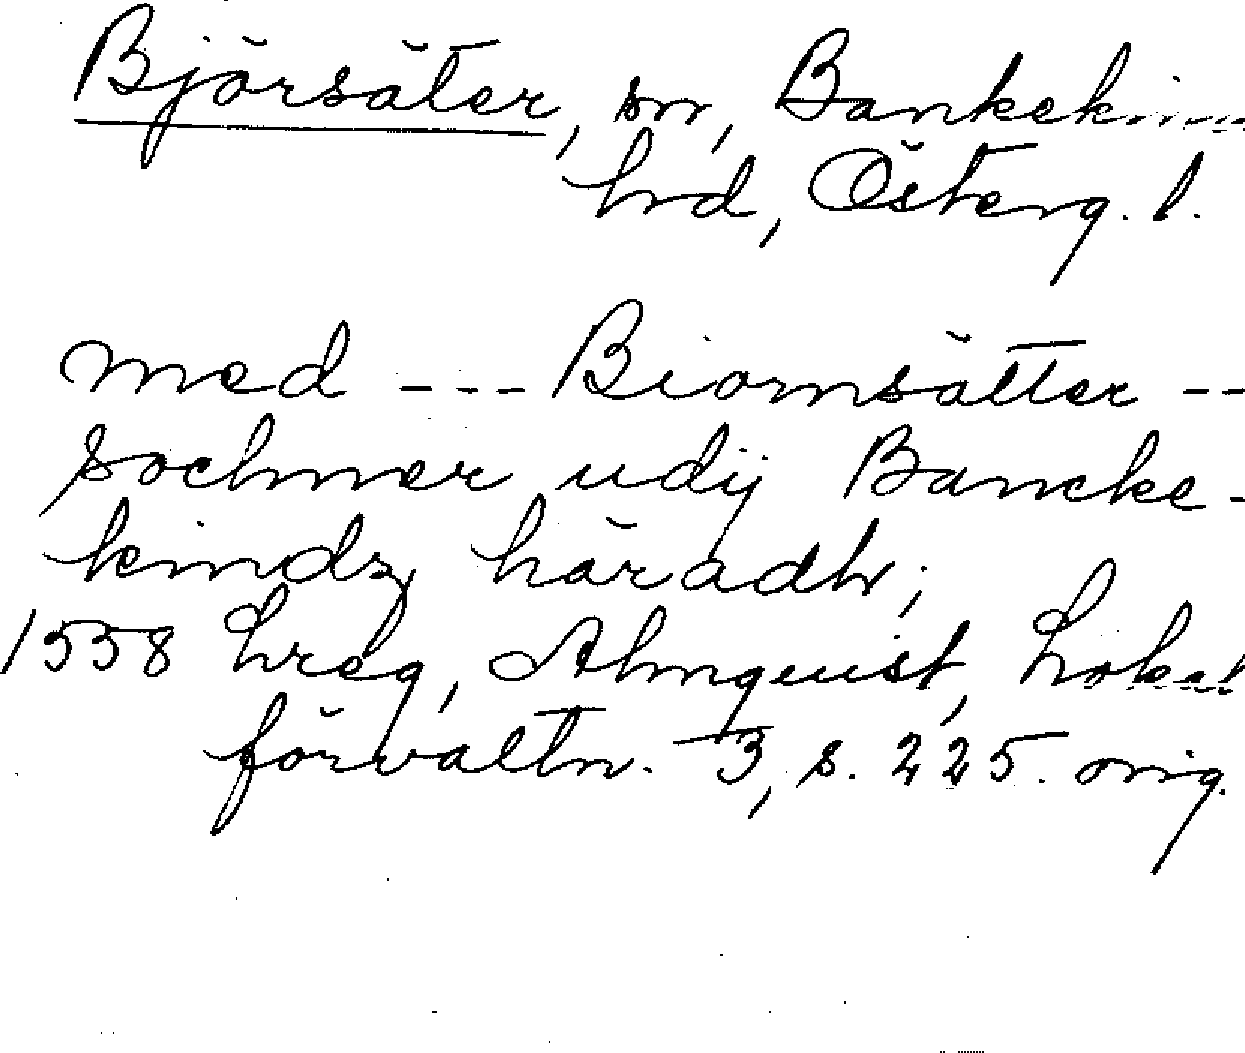 Björsäter, sn, Bankekinds
hrd, Österg. l.
med --- Biornsätter --
sochner udij Bancke-
kindz häradh;
1558 hreg, Almquist, Lokal
förvaltn. 3, s. 225. orig.